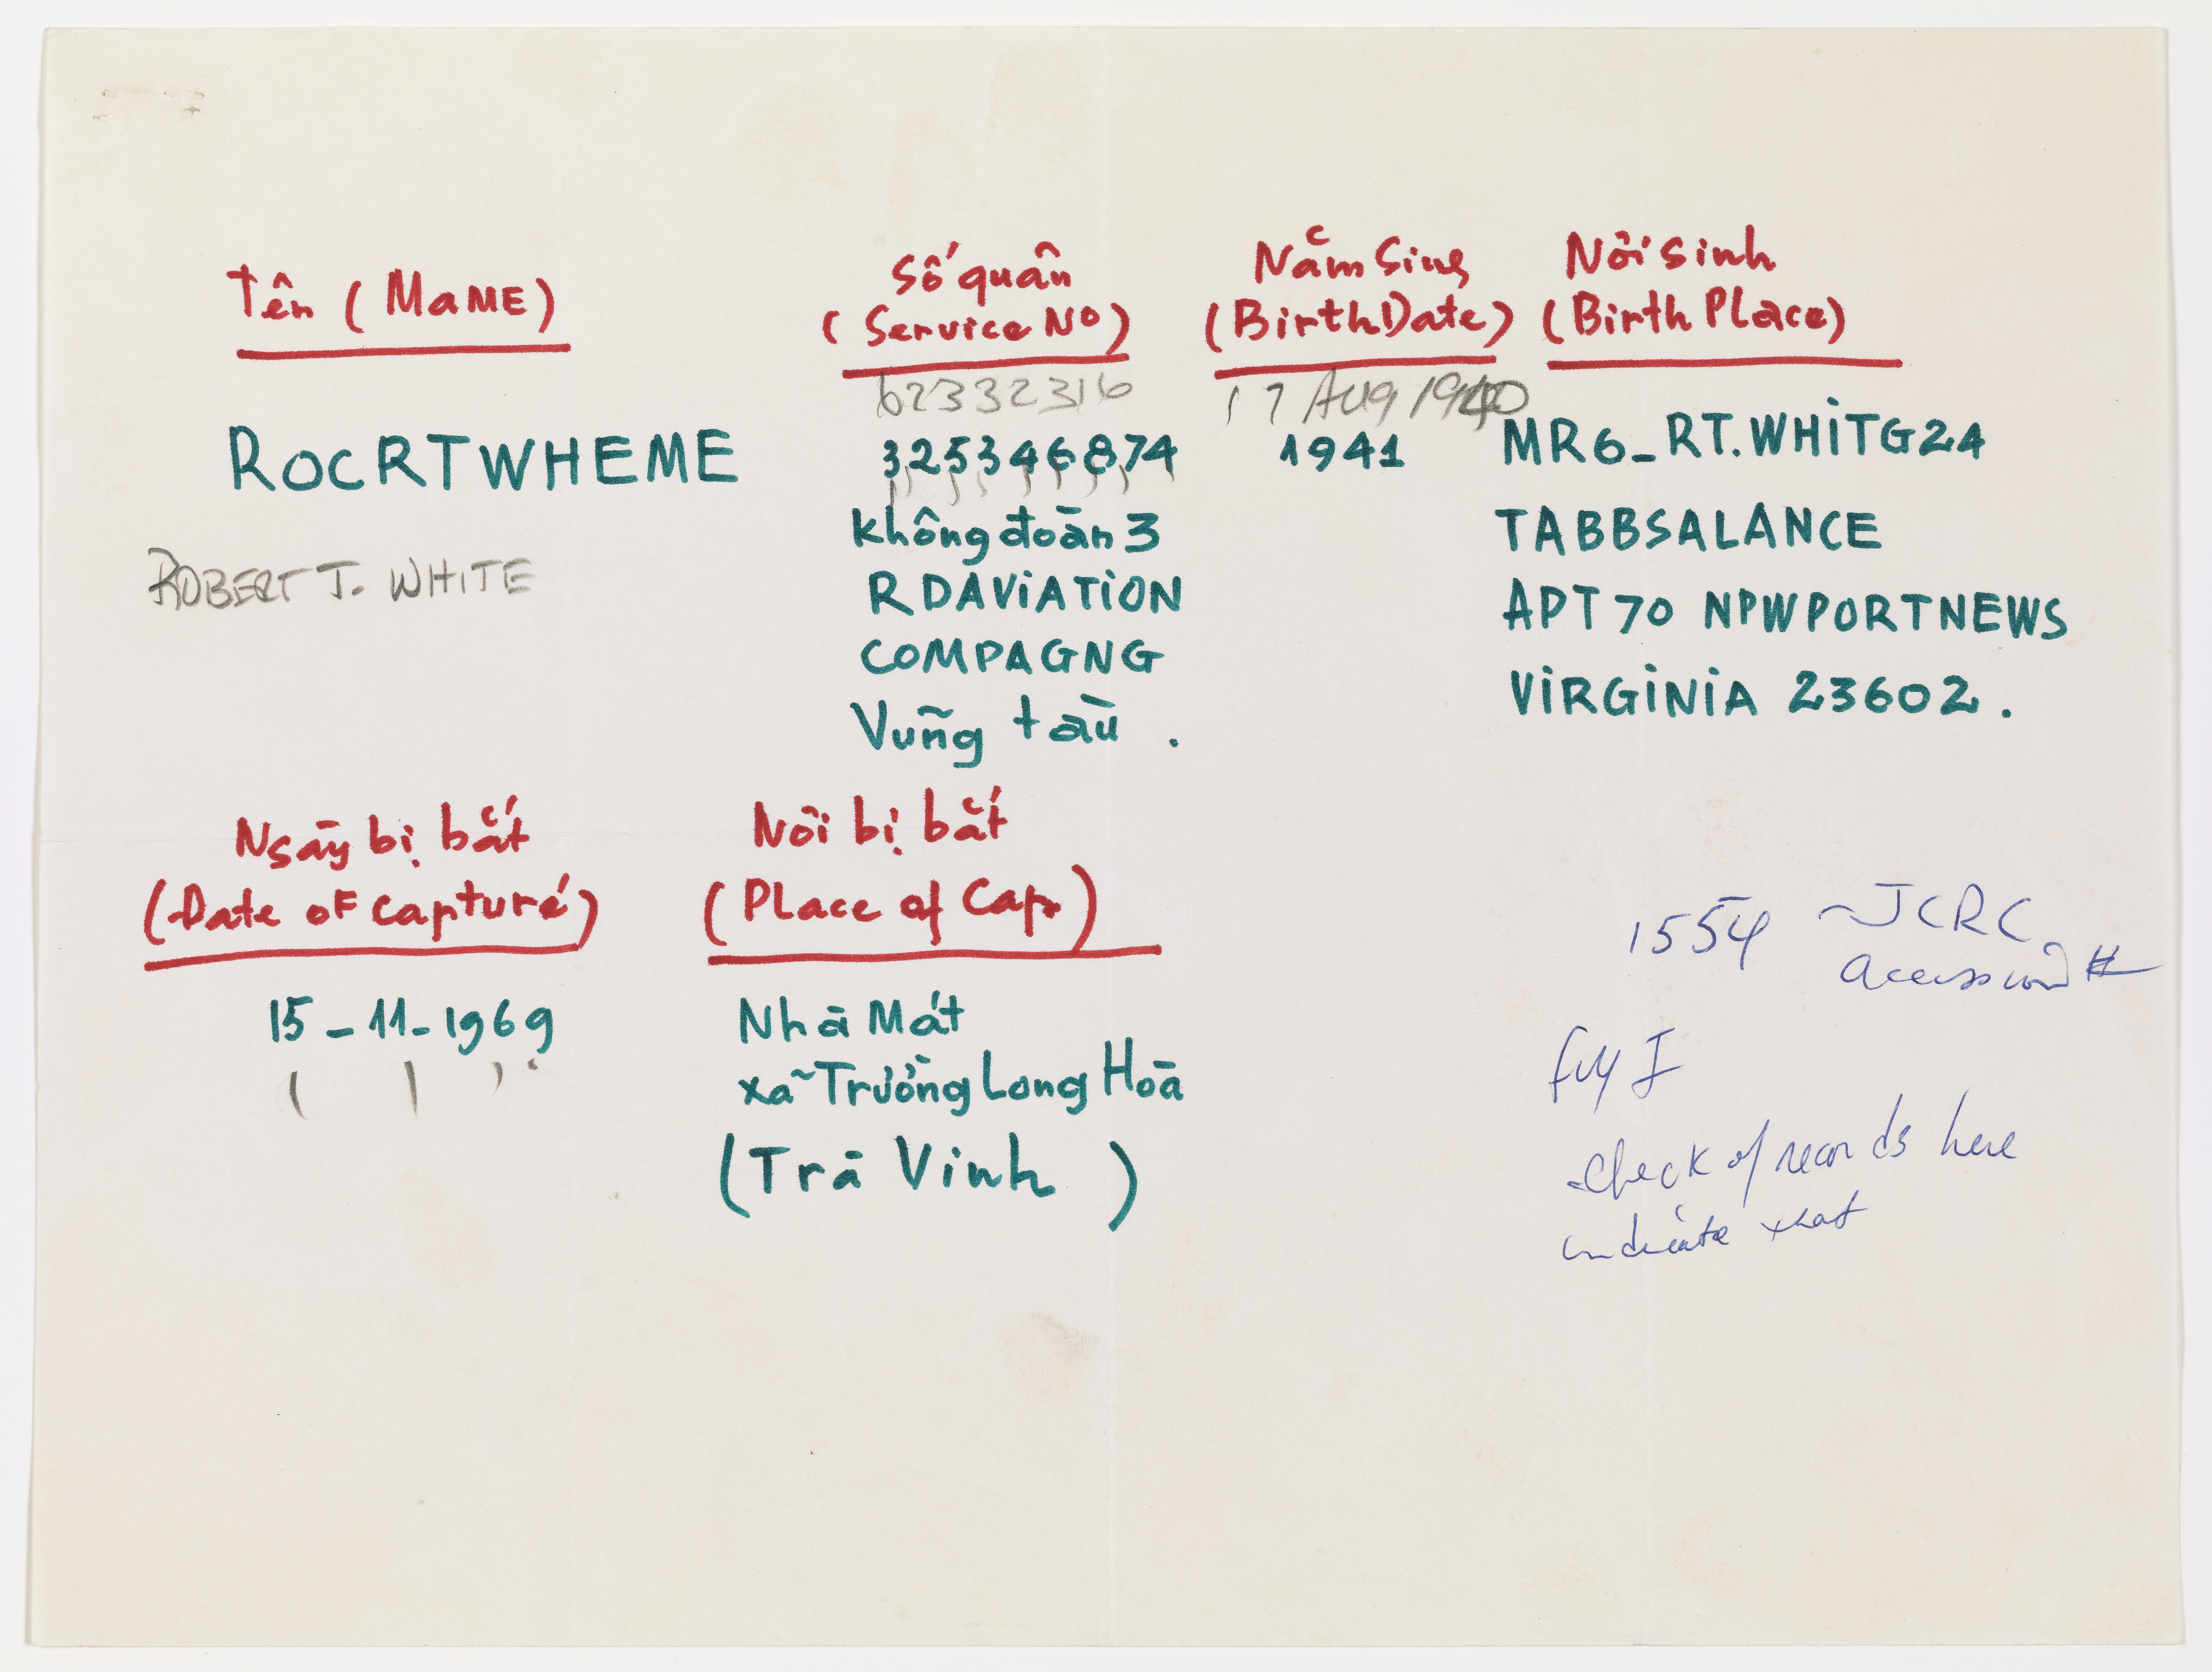 Tên (MaME)
Số quân
(Service Nº)
Năm Sing
(BirthDate)
Nơi sinh
(Birth Place)
62332316
17 AUG 1940
ROCRTWHEME
325346874
1941
MR6_RT.WHITG24
Không đoàn 3
TABBSALANCE
ROBERT J. WHITE
RDAVIATION
APT 70 NPWPORTNEWS
COMPAGNG
VIRGINIA 23602.
Vũng tàu.
Ngày bị bắt
(Date of capturé)
Nôi bị bắt
(Place of Cap)
1554 ~ JCRC
accession #
15-11-1969
Nhà Mát
xã Trường Long Hoà
(Trà Vinh)
fuy I
Check of records here
indicate that